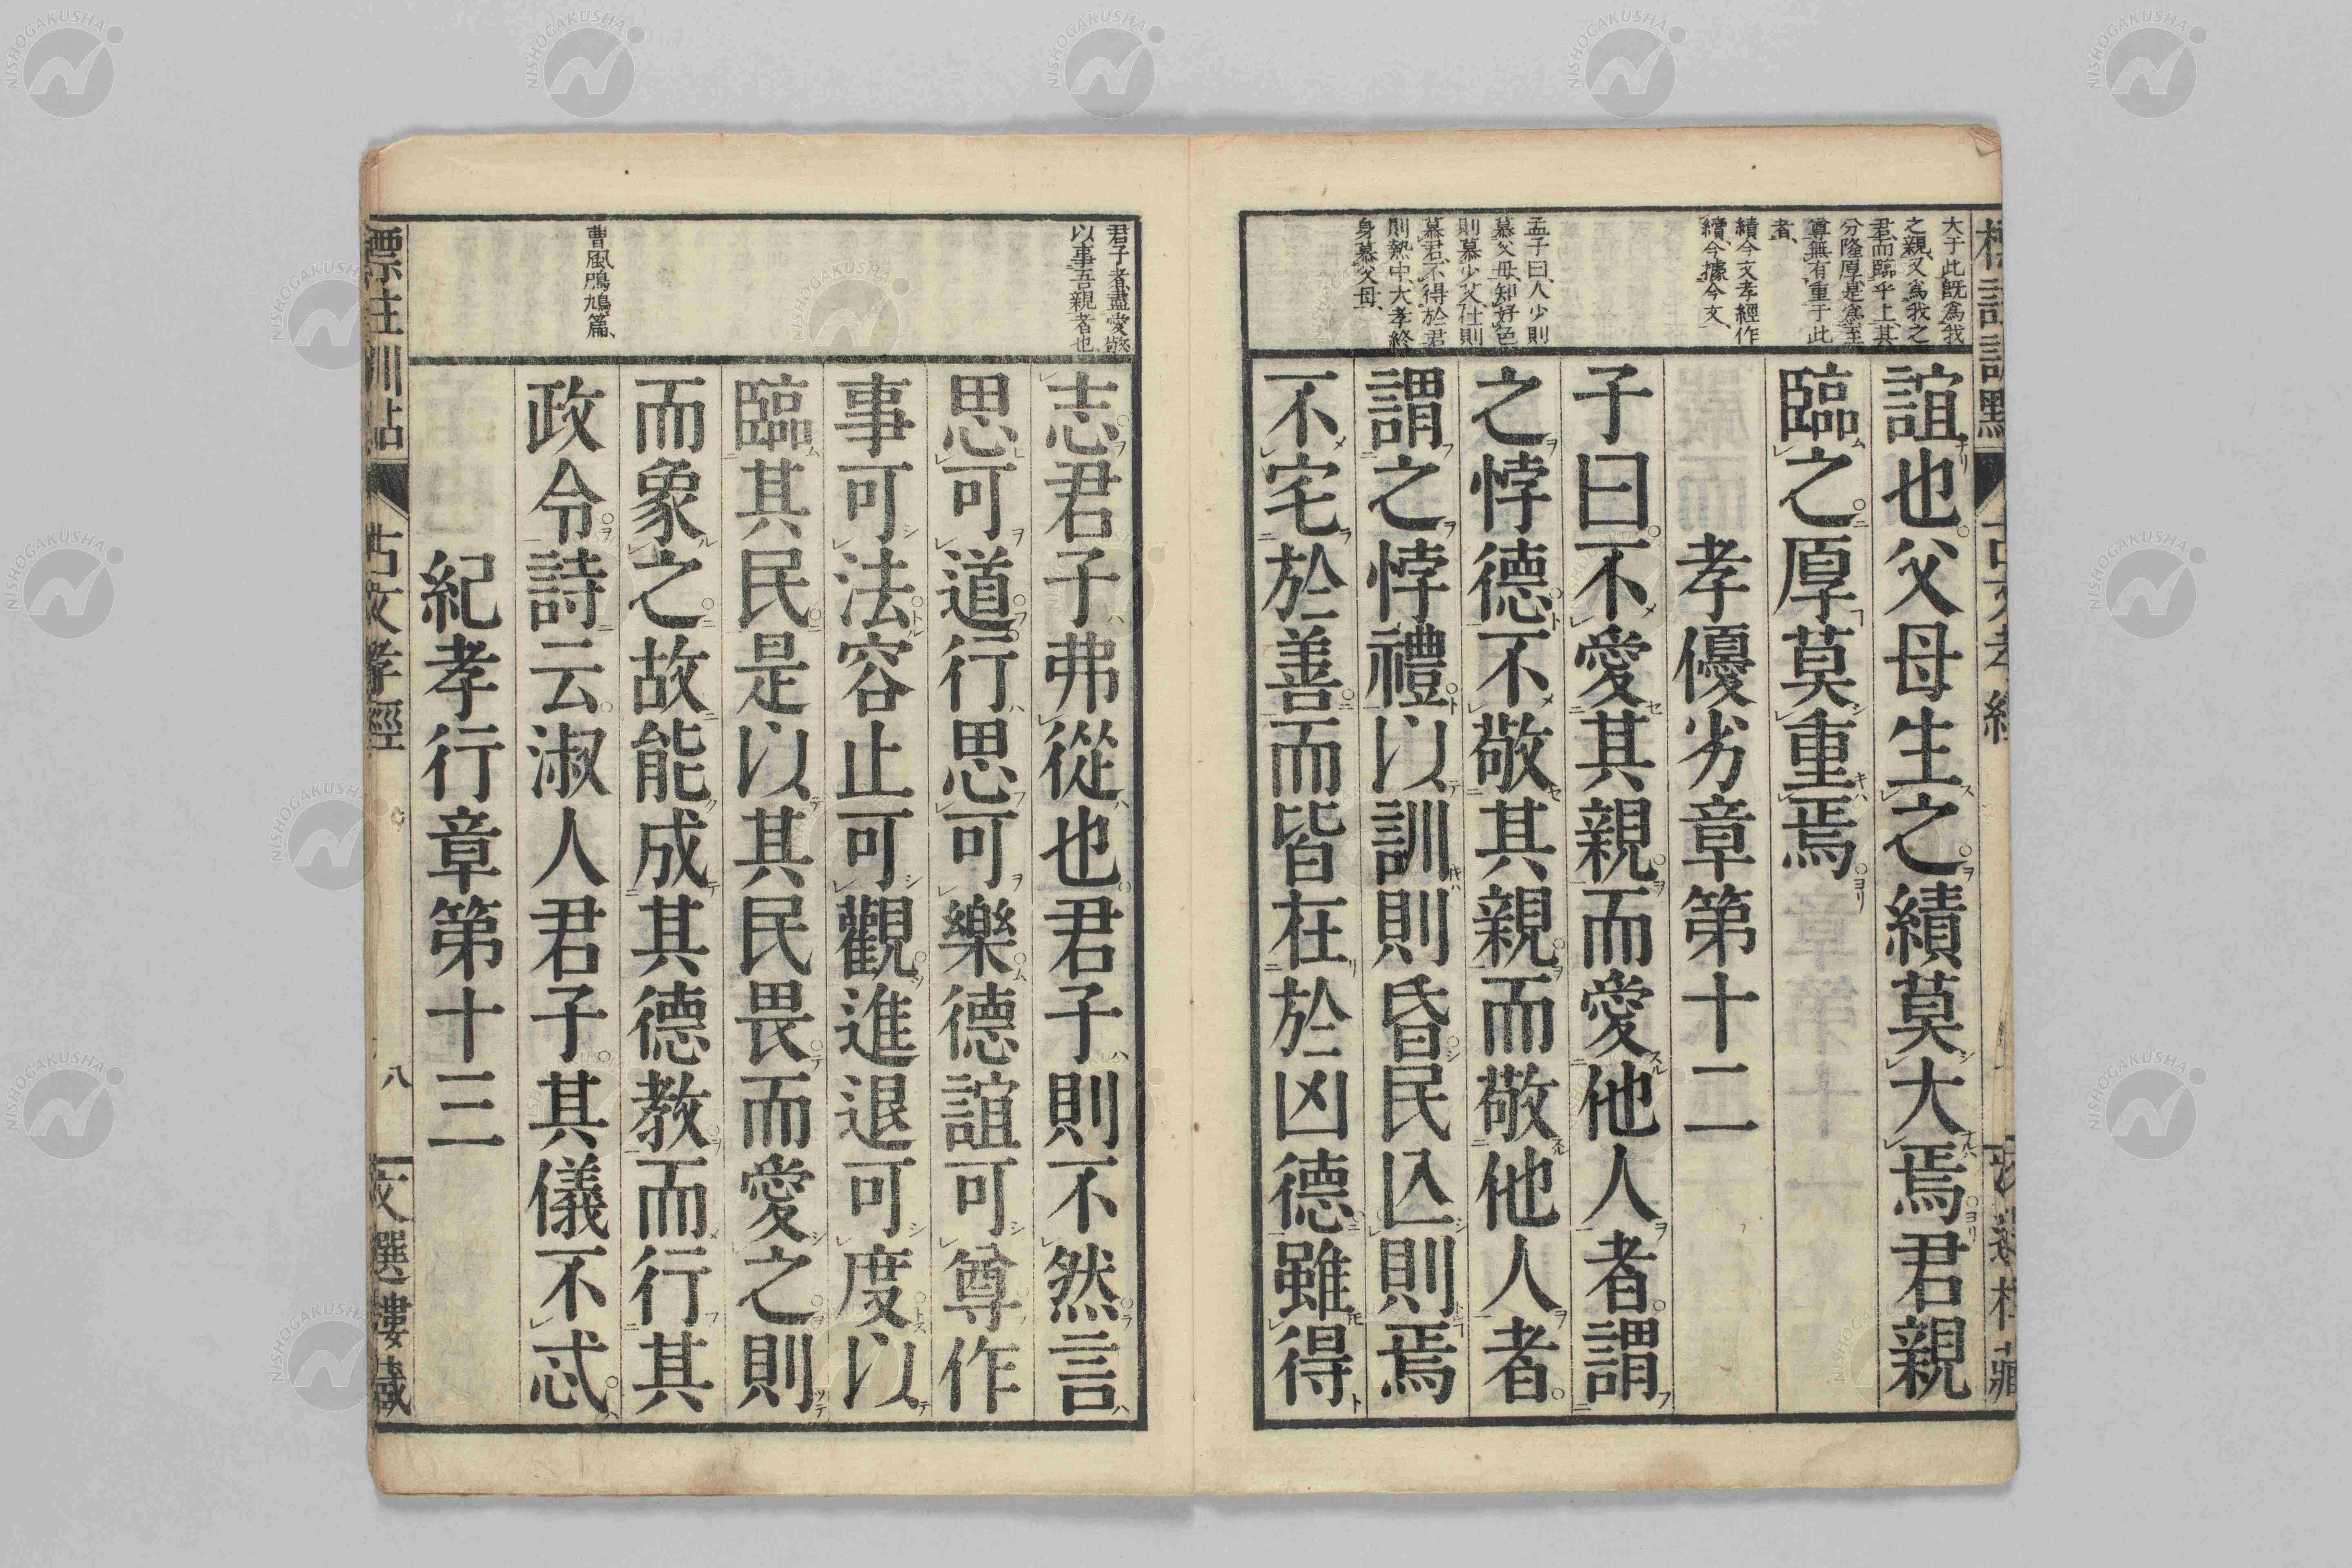 大于此既爲我
之親又爲我之
君而臨乎上其
分隆厚是爲至
尊無有重于此
者
績今文孝經作
續今據今文
孟子曰人少則
慕父母知好色
則慕少艾仕則
慕君不得於君
則熱中大孝終
身慕父母
誼也父母生之績莫大焉君親
臨之厚莫重焉
孝優劣章第十二
子曰不愛其親而愛他人者謂
之悖德不敬其親而敬他人者
謂之悖禮以訓則昏民亾則焉
不宅於善而皆在於凶德雖得
君子者盡愛敬
以事吾親者也
曹風鳲鳩篇
志君子弗從也君子則不然言
思可道行思可樂德誼可尊作
事可法容止可觀進退可度以
臨其民是以其民畏而愛之則
而象之故能成其德教而行其
政令詩云淑人君子其儀不忒
紀孝行章第十三
標注訓點
古文孝經
八
文選樓藏
NISHOGAKUSHA